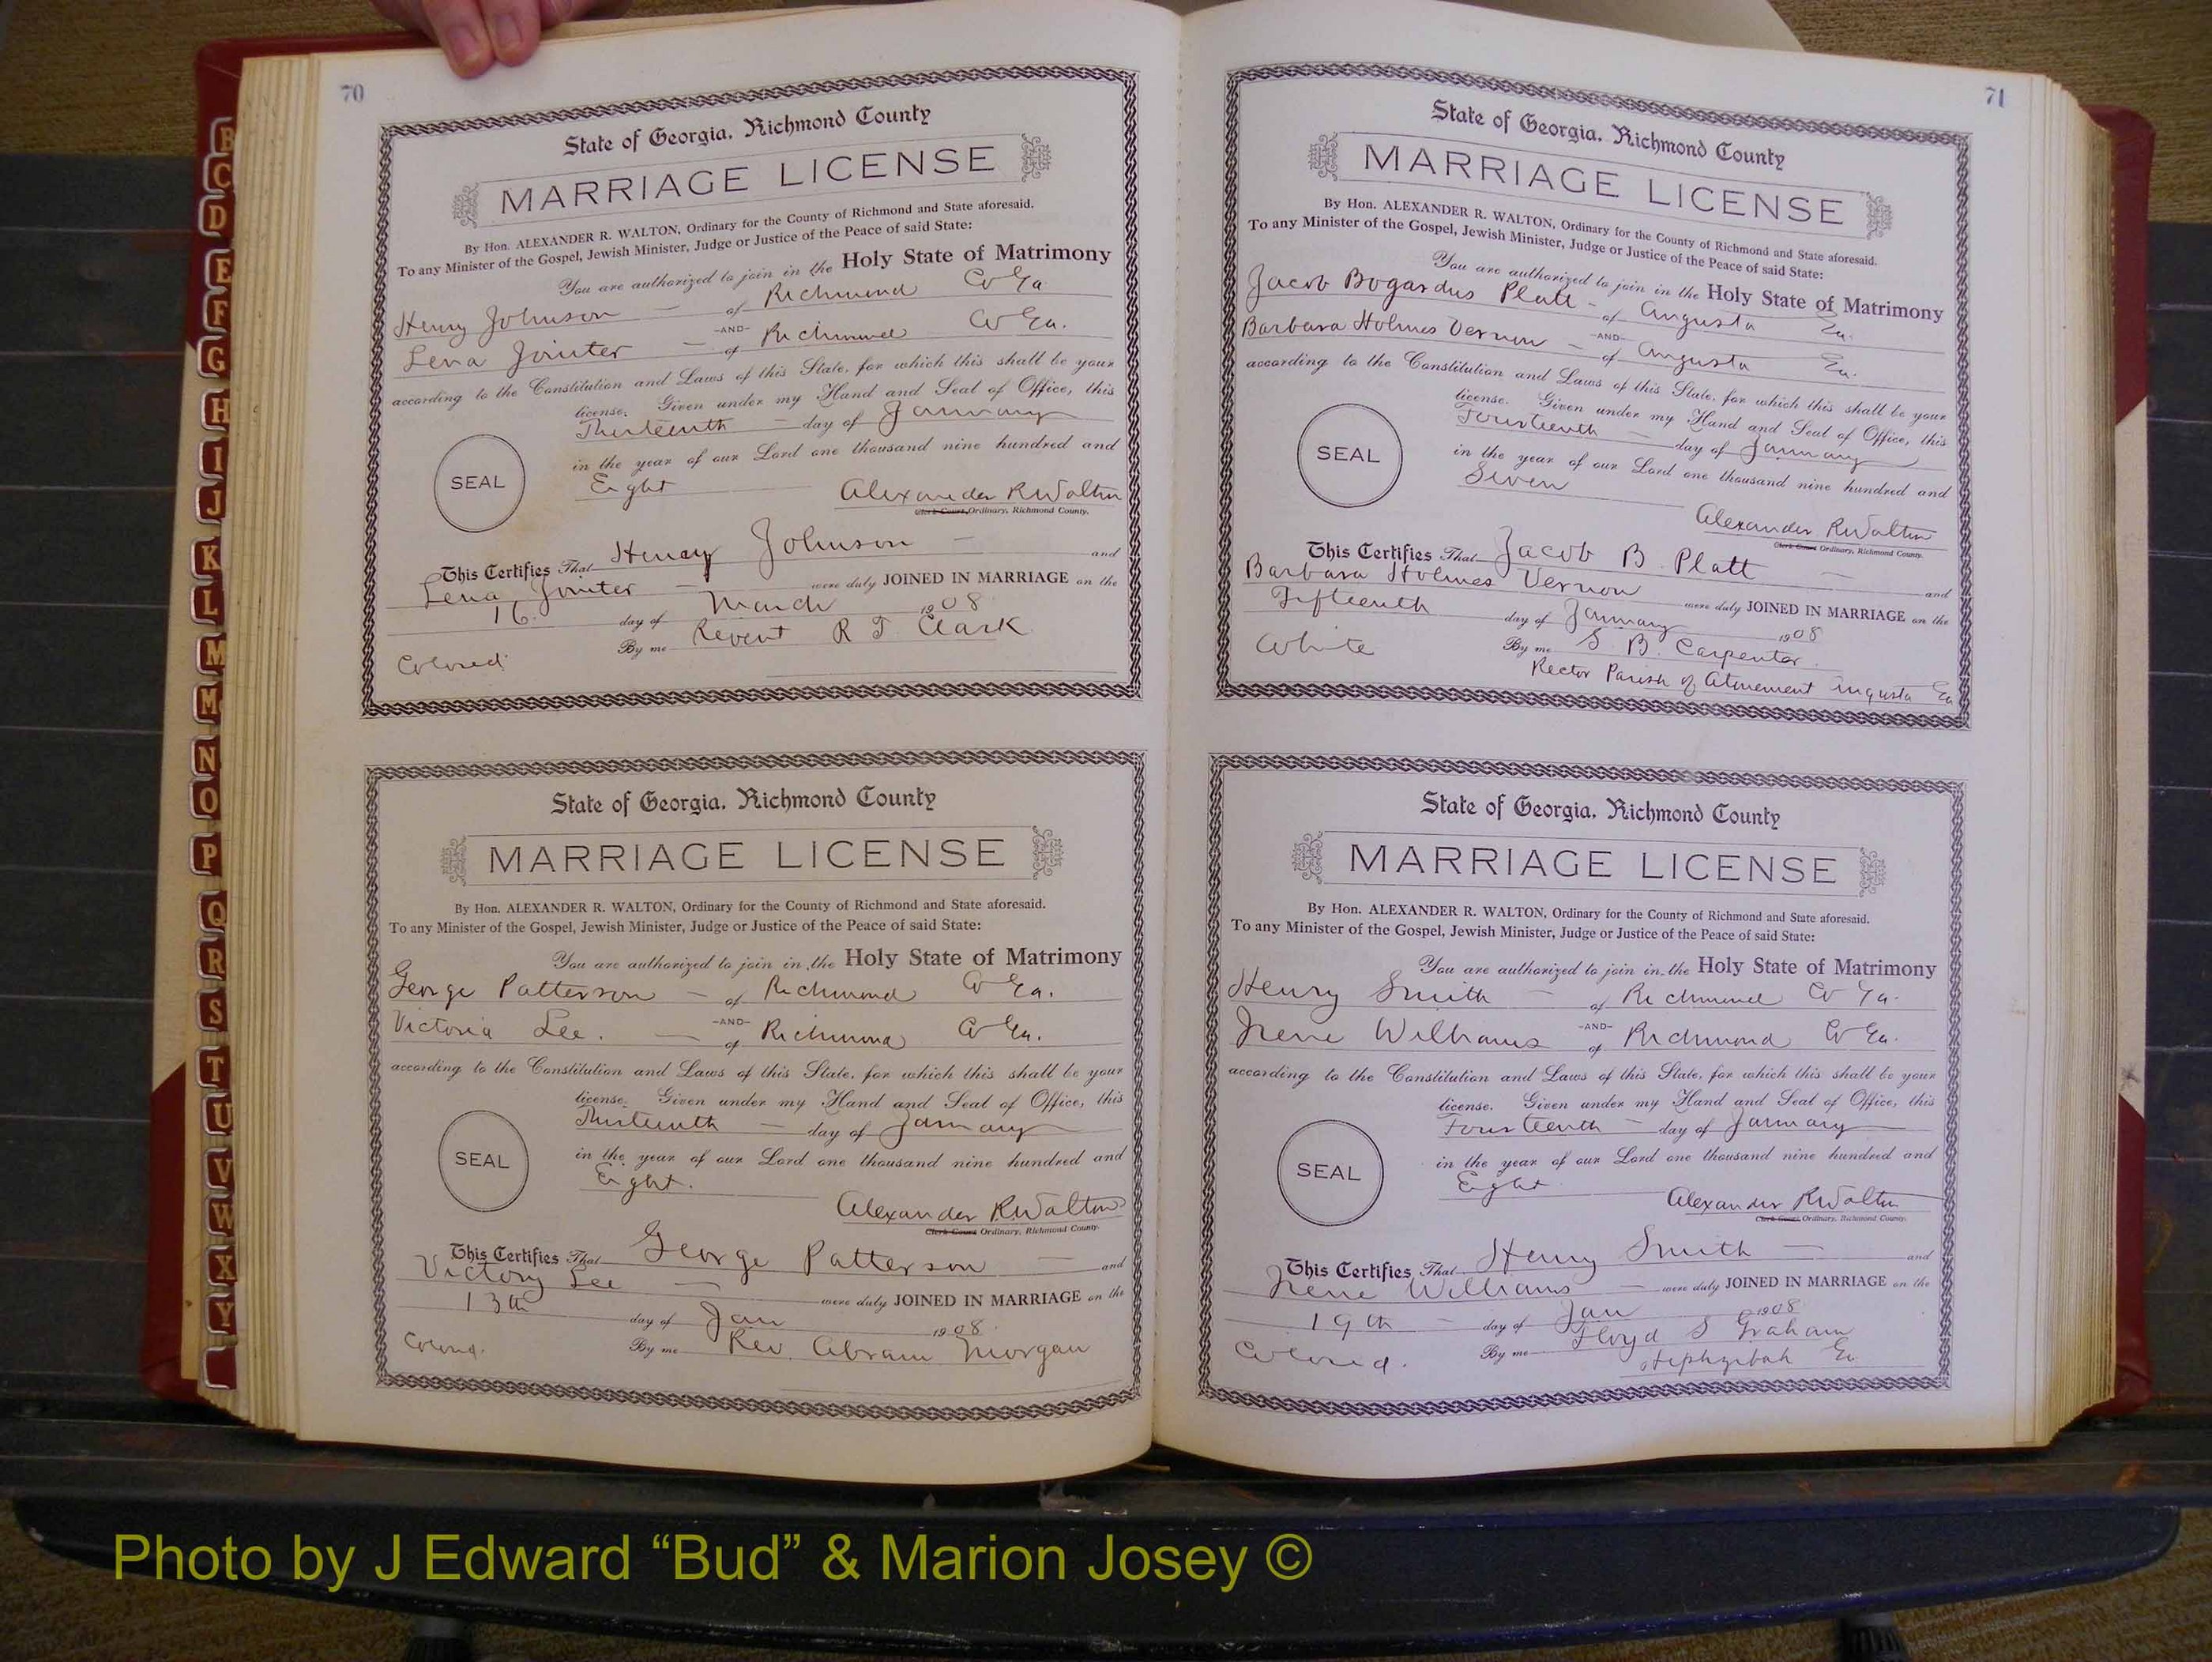 70
State of Georgia, Richmond County
MARRIAGE LICENSE
By Hon. ALEXANDER R. WALTON, Ordinary for the County of Richmond and State aforesaid.
To any Minister of the Gospel, Jewish Minister, Judge or Justice of the Peace of said State:
You are authorized to join in the Holy State of Matrimony
Henry Johnson — of Richmond Co Ga
-AND-
Lena Jointer — of Richmond Co Ga.
according to the Constitution and Laws of this State, for which this shall be your
license. Given under my Hand and Seal of Office, this
Thirteenth — day of January
in the year of our Lord one thousand nine hundred and
Eight
SEAL
Alexander R Walton
Clerk Court, Ordinary, Richmond County.
This Certifies That Henry Johnson — and
Lena Jointer — were duly JOINED IN MARRIAGE on the
16. day of March 1908
By me Revent R T Clark
Colored
State of Georgia, Richmond County
MARRIAGE LICENSE
By Hon. ALEXANDER R. WALTON, Ordinary for the County of Richmond and State aforesaid.
To any Minister of the Gospel, Jewish Minister, Judge or Justice of the Peace of said State:
You are authorized to join in the Holy State of Matrimony
George Patterson — of Richmond Co Ga.
-AND-
Victoria Lee. — of Richmond Co Ga.
according to the Constitution and Laws of this State, for which this shall be your
license. Given under my Hand and Seal of Office, this
Thirteenth — day of January
in the year of our Lord one thousand nine hundred and
Eight.
SEAL
Alexander R Walton
Clerk Court Ordinary, Richmond County.
This Certifies That George Patterson — and
Victory Lee — were duly JOINED IN MARRIAGE on the
13th day of Jan 1908.
By me Rev. Abram Morgan
Colored.
71
State of Georgia, Richmond County
MARRIAGE LICENSE
By Hon. ALEXANDER R. WALTON, Ordinary for the County of Richmond and State aforesaid.
To any Minister of the Gospel, Jewish Minister, Judge or Justice of the Peace of said State:
You are authorized to join in the Holy State of Matrimony
Jacob Bogardus Platt — of Augusta Ga.
-AND-
Barbara Holmes Vernon — of Augusta Ga.
according to the Constitution and Laws of this State, for which this shall be your
license. Given under my Hand and Seal of Office, this
Fourteenth — day of January
in the year of our Lord one thousand nine hundred and
Seven
SEAL
Alexander R Walton
Clerk Court Ordinary, Richmond County.
This Certifies That Jacob B. Platt — and
Barbara Holmes Vernon were duly JOINED IN MARRIAGE on the
Fifteenth day of January 1908
By me S. B. Carpenter.
White
Rector Parish of Atonement Augusta Ga
State of Georgia, Richmond County
MARRIAGE LICENSE
By Hon. ALEXANDER R. WALTON, Ordinary for the County of Richmond and State aforesaid.
To any Minister of the Gospel, Jewish Minister, Judge or Justice of the Peace of said State:
You are authorized to join in the Holy State of Matrimony
Henry Smith — of Richmond Co Ga.
-AND-
Irene Williams of Richmond Co Ga.
according to the Constitution and Laws of this State, for which this shall be your
license. Given under my Hand and Seal of Office, this
Fourteenth — day of January
in the year of our Lord one thousand nine hundred and
Eight
SEAL
Alexander R Walton
Clerk Court, Ordinary, Richmond County.
This Certifies That Henry Smith — and
Irene Williams — were duly JOINED IN MARRIAGE on the
19th — day of Jan 1908
By me Floyd S Graham
Colored.
Hephzibah Ga
B
C
D
E
F
G
H
I
J
K
L
M
Mc
N
O
P
Q
R
S
T
U
V
W
X
Y
Photo by J Edward “Bud” & Marion Josey ©